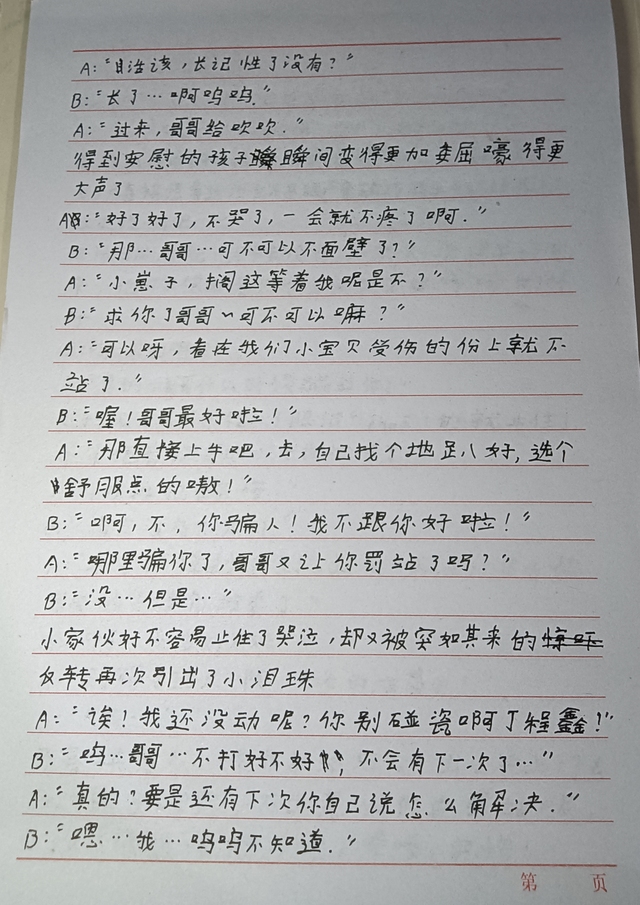 A:“自活该，长记性了没有？”
B:“长了…啊呜呜.”
A:“过来，哥哥给吹吹.”
得到安慰的孩子瞬间变得更加委屈嚎得更
大声了
A:“好了好了，不哭了，一会就不疼了啊.”
B:“那…哥哥…可不可以不面壁了？”
A:“小崽子，搁这等着我呢是不？”
B:“求你了哥哥~可不可以嘛？”
A:“可以呀，看在我们小宝贝受伤的份上就不
站了.”
B:“喔！哥哥最好啦！”
A:“那直接上手吧，去，自己找个地趴好，选个
舒服点的嗷！”
B:“啊，不，你骗人！我不跟你好啦！”
A:“哪里骗你了，哥哥又让你罚站了吗？”
B:“没…但是…”
小家伙好不容易止住了哭泣，却又被突如其来的惊吓
反转再次引出了小泪珠
A:“诶！我还没动呢？你别碰瓷啊丁程鑫！”
B:“呜…哥哥…不打好不好，不会有下一次了…”
A:“真的？要是还有下次你自己说怎么解决.”
B:“嗯…我…呜呜不知道.”
第 页